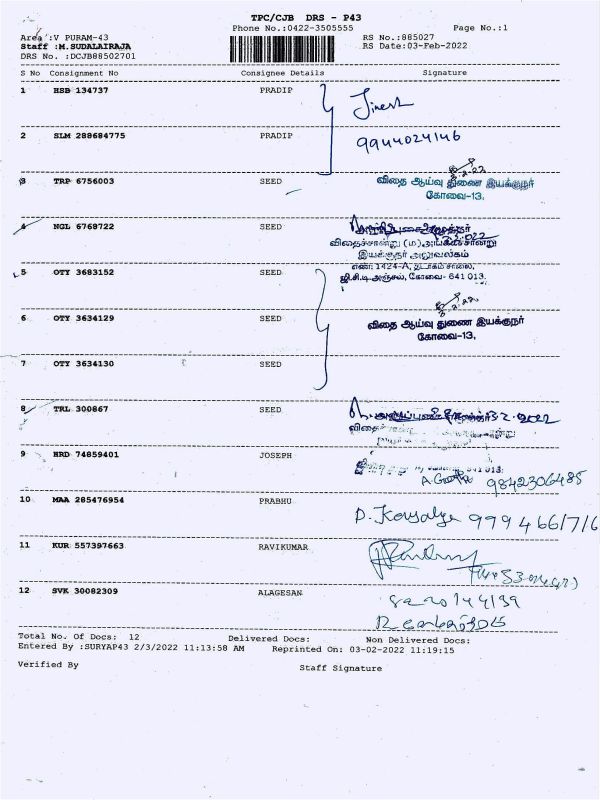 TPC/CJB DRS - P43
Phone No.:0422-3505555 Page No.:1
Area :V PURAM-43 RS No.:885027
Staff :M.SUDALAIRAJA RS Date:03-Feb-2022
DRS No. :DCJB88502701
S No Consignment No Consignee Details Signature
1 HSB 134737 PRADIP
2 SLM 288684775 PRADIP 9944024146
3 TRP 6756003 SEED விதை ஆய்வு துணை இயக்குநர்
கோவை-13.
4 NGL 6768722 SEED
விதைச்சான்று (ம) அங்ககச்சான்று
இயக்குநர் அலுவலகம்
எண்: 1424-A, தடாகம் சாலை,
5 OTY 3683152 SEED ஜி.சி.டி அஞ்சல், கோவை- 641 013.
6 OTY 3634129 SEED விதை ஆய்வு துணை இயக்குநர்
கோவை-13.
7 OTY 3634130 SEED
8 TRL 300867 SEED
9 HRD 74859401 JOSEPH
9842306485
10 MAA 285476954 PRABHU
11 KUR 557397663 RAVIKUMAR
12 SVK 30082309 ALAGESAN
Total No. Of Docs: 12 Delivered Docs: Non Delivered Docs:
Entered By :SURYAP43 2/3/2022 11:13:58 AM Reprinted On: 03-02-2022 11:19:15
Verified By Staff Signature